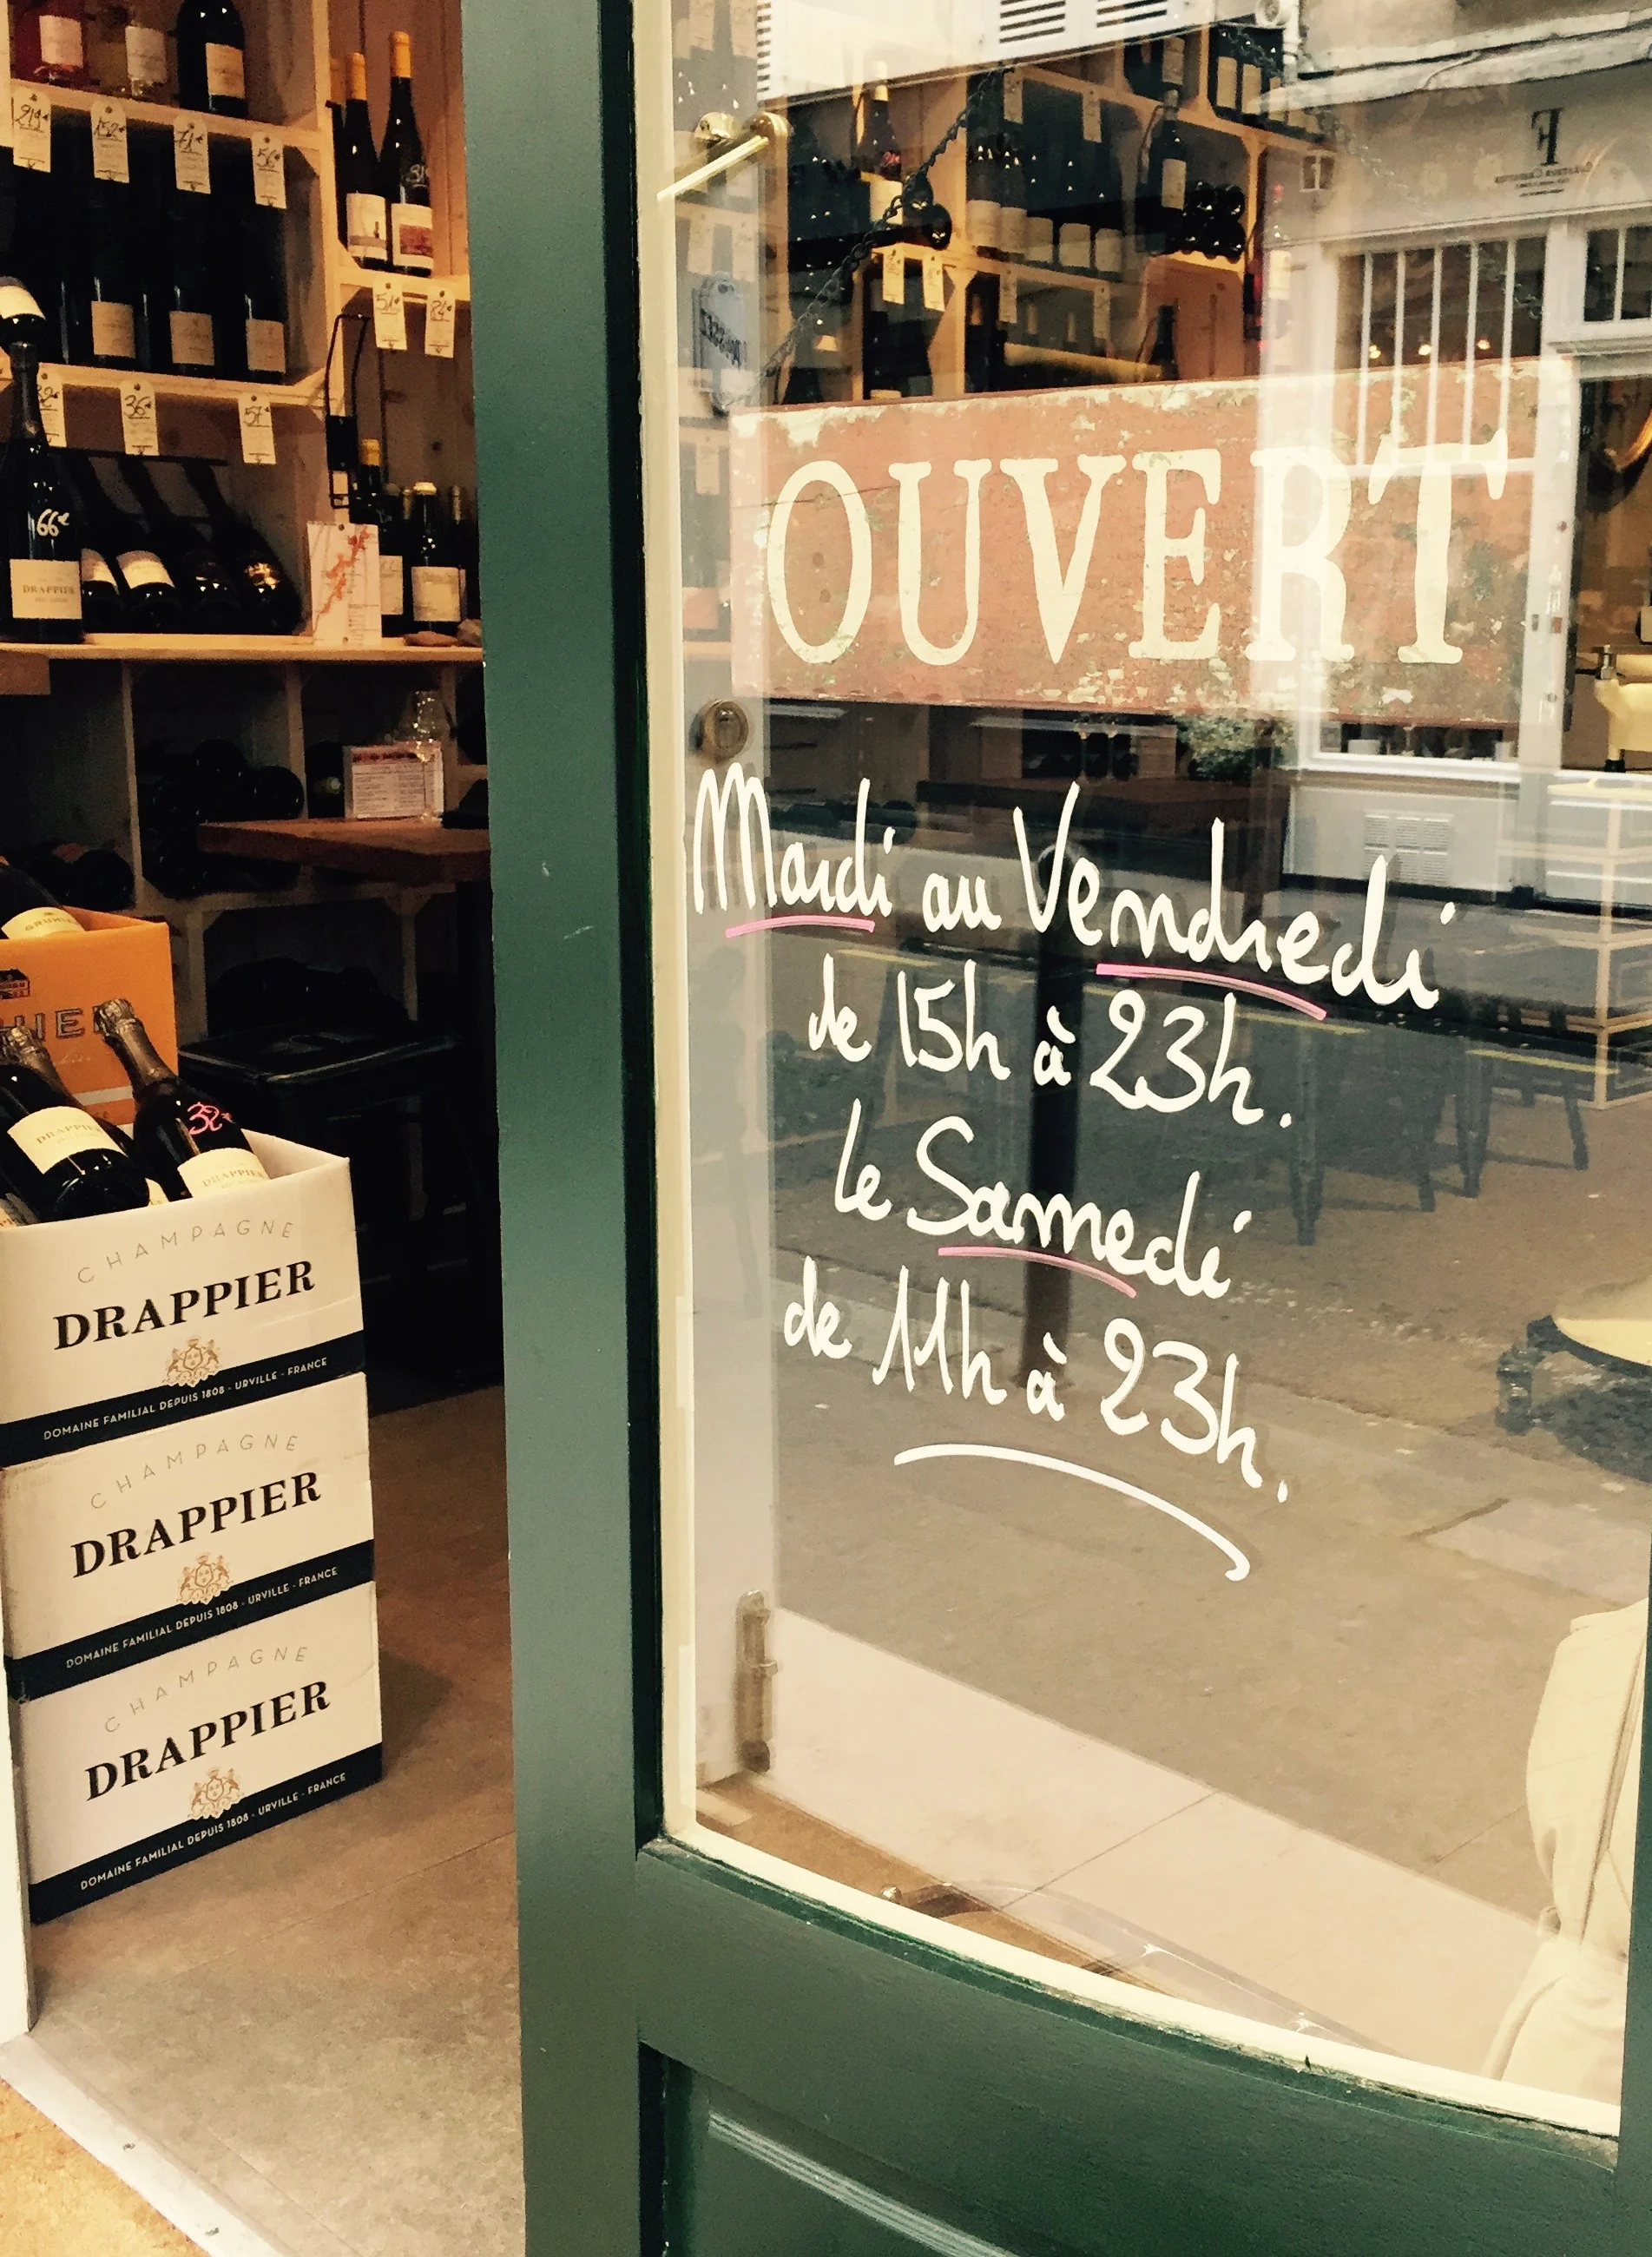 219€
152€
71€
56€
51€
82€
36€
57€
66€
DRAPPIER
OUVERT
Mardi au Vendredi
de 15h à 23h.
le Samedi
de 11h à 23h.
DRAPPIER
32€
DRAPPIER
CHAMPAGNE
DRAPPIER
DOMAINE FAMILIAL DEPUIS 1808 - URVILLE - FRANCE
CHAMPAGNE
DRAPPIER
DOMAINE FAMILIAL DEPUIS 1808 - URVILLE - FRANCE
CHAMPAGNE
DRAPPIER
DOMAINE FAMILIAL DEPUIS 1808 - URVILLE - FRANCE